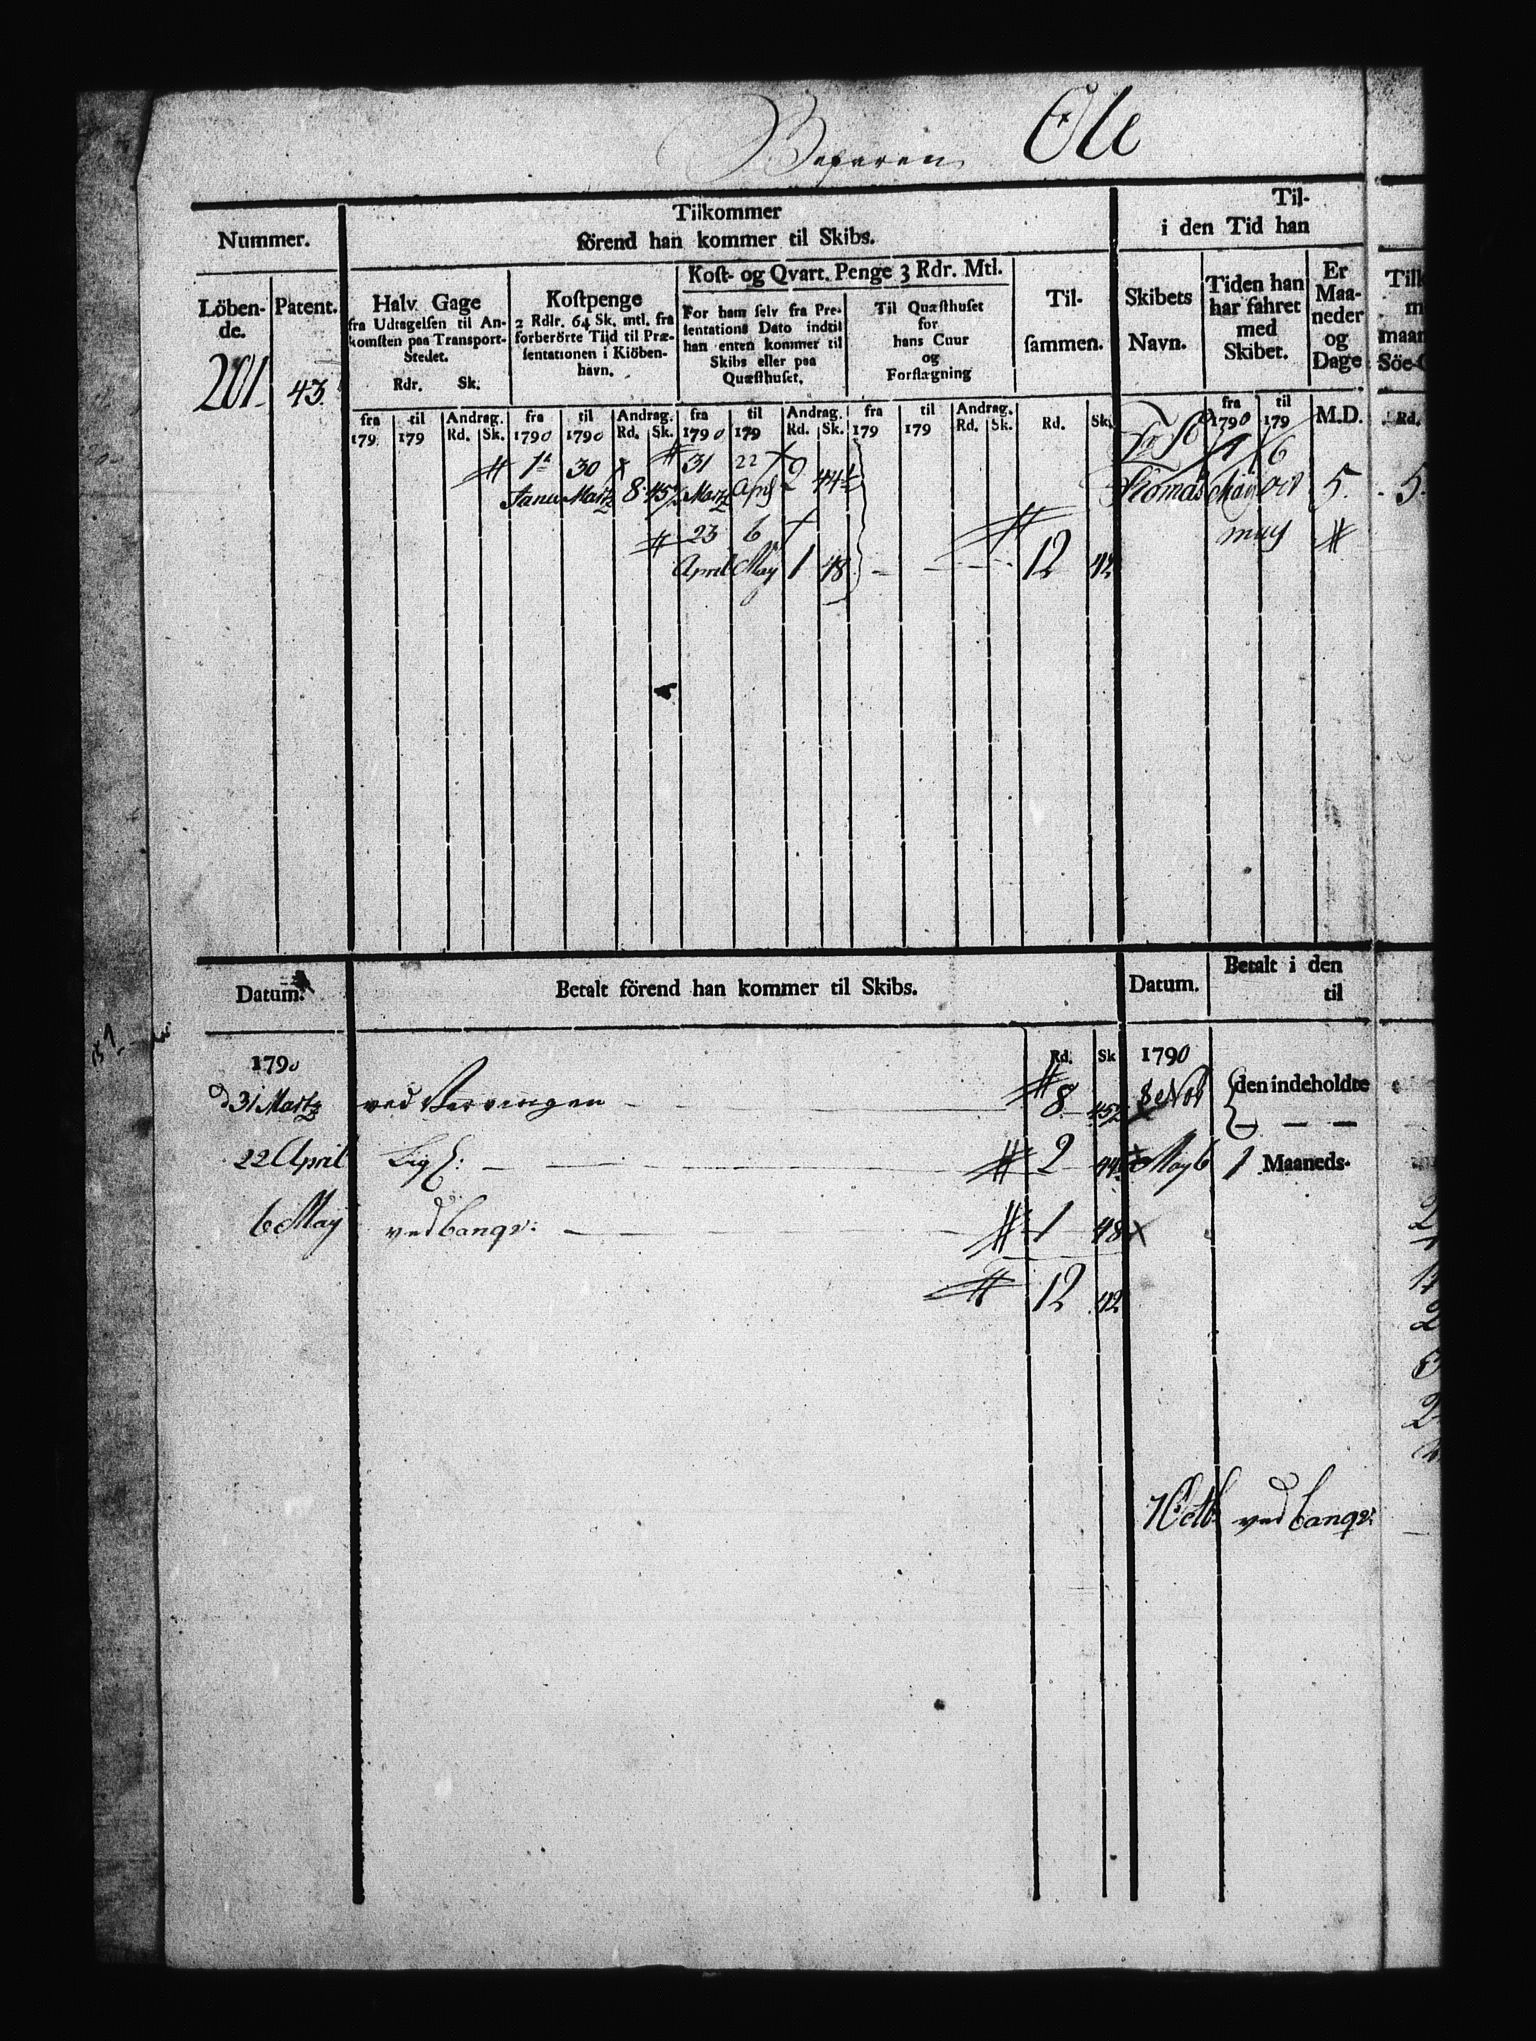 Ole
Nummer.
Löben-
de.
Patent.
201.
43.
Tilkommer
förend han kommer til Skibs.
Halv Gage
fra Udtagelsen til An-
komsten paa Transport-
Stedet.
Rdr. Sk.
Kostpenge
2 Rdlr. 64 Sk. mtl. fra
forberörte Tiid til Præ-
sentationen i Kiöben-
havn.
Kost- og Qvart. Penge 3 Rdr. Mtl.
For ham selv fra Pre-
sentations Dato indtil
han enten kommer til
Skibs eller paa
Quæsthuset.
Til Quæsthuset
for
hans Cuur
og
Forflægning
Til-
sammen.
Til-
i den Tid han
Skibets
Navn.
Tiden han
har fahret
med
Skibet.
Er
Maa-
neder
og
Dage
Tilk
m
maan
Söe-G
fra til Andrag. fra til Andrag. fra til Andrag. fra til Andrag.
179 179 Rd. Sk. 1790 1790 Rd. Sk. 1790 179 Rd. Sk. 179 179 Rd. Sk. Rd. Sk.
fra til
1790 179 M.D. Rd.
1 30 31 22 1 6
Martz 8 45 Martz April 2 44 Thomas 5. 5.
23 6
April May 1 48 12 42
Datum. Betalt förend han kommer til Skibs. Datum. Betalt i den
til
1790 Rd. Sk 1790
31 Martz 8 45 8 Nov den indeholdte
22 April 2 44 May 6 1 Maaneds-
6 May ved banqv: 1 48
12 42
ved banqv: